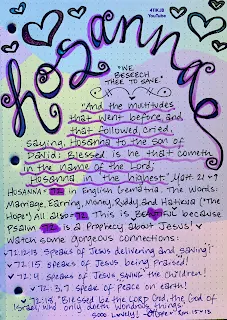 4TIKJB
YouTube
hosanna
"WE
BESEECH
THEE TO SAVE"
"And the multitudes
that went before, and
that followed, cried,
saying, Hosanna to the son of
David: Blessed is he that cometh
in the name of the Lord;
Hosanna in the highest." Matt. 21:9
HOSANNA = 72 in English Gematria. The words:
Marriage, Earring, Money, Ruddy, and Hatikva ("The
Hope") All also 72. This is BEAUTIFUL because
Psalm 72 is a Prophecy about Jesus!
Watch some gorgeous connections -
72:12-13 Speaks of Jesus delivering and saving!
72:15 Speaks of Jesus being praised!
72:4 Speaks of Jesus saving the children!
72:3, 7 Speak of peace on earth!
72:18, "Blessed be the LORD God, the God of
Israel, who only doeth wondrous things."
Sooo Lovely! Rom. 15:13